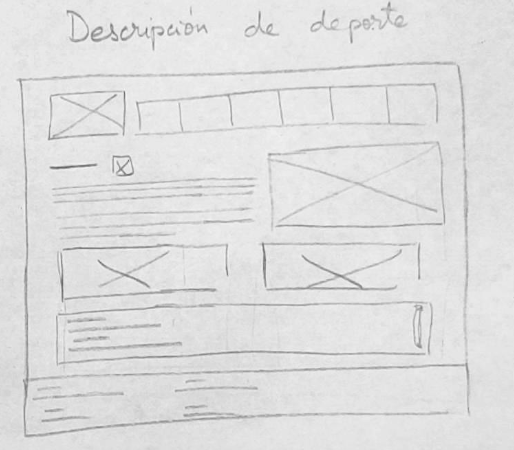 Descripción de deporte